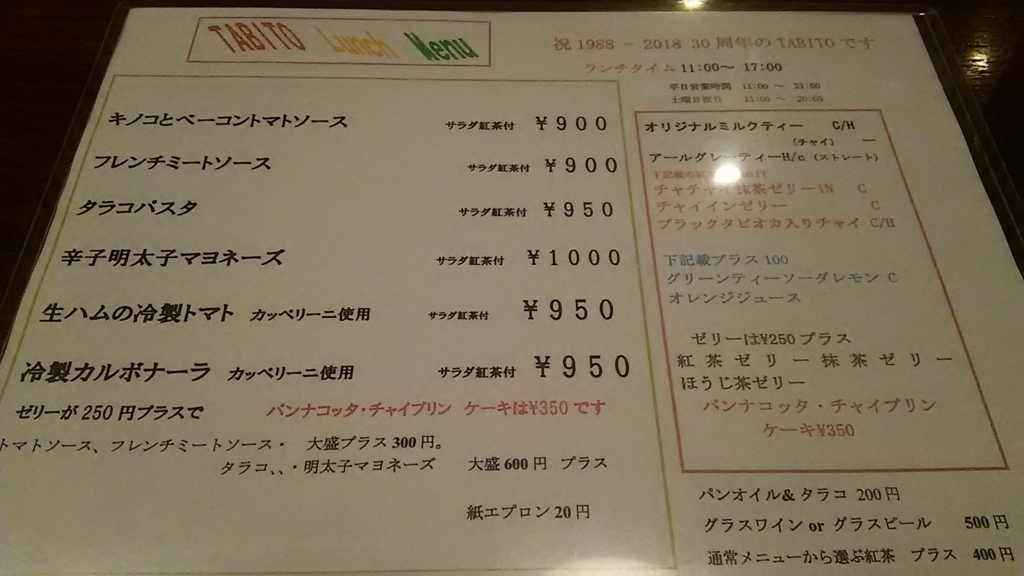 TABITO Lunch Menu
祝 1988 - 2018 30 周年の TABITO です
ランチタイム 11:00～ 17:00
平日営業時間 11:00 ～ 21:00
土曜日祝日 11:00 ～ 20:00
キノコとベーコントマトソース サラダ紅茶付 ￥900
フレンチミートソース サラダ紅茶付 ￥900
タラコパスタ サラダ紅茶付 ￥950
辛子明太子マヨネーズ サラダ紅茶付 ￥1000
生ハムの冷製トマト カッペリーニ使用 サラダ紅茶付 ￥950
冷製カルボナーラ カッペリーニ使用 サラダ紅茶付 ￥950
ゼリーが 250 円プラスで パンナコッタ・チャイプリン ケーキは¥350 です
トマトソース、フレンチミートソース・ 大盛プラス 300 円。
タラコ、、・明太子マヨネーズ 大盛 600 円 プラス
紙エプロン 20 円
オリジナルミルクティー C/H
（チャイ） ー
アールグレーティーH/c（ストレート）
下記載の紅
チャチャイ抹茶ゼリーiN C
チャイインゼリー C
ブラックタピオカ入りチャイ C/H
下記載プラス 100
グリーンティーソーダレモン C
オレンジジュース
ゼリーは¥250 プラス
紅茶ゼリー抹茶ゼリー
ほうじ茶ゼリー
パンナコッタ・チャイプリン
ケーキ¥350
パンオイル& タラコ 200 円
グラスワイン or グラスビール 500 円
通常メニューから選ぶ紅茶 プラス 400 円